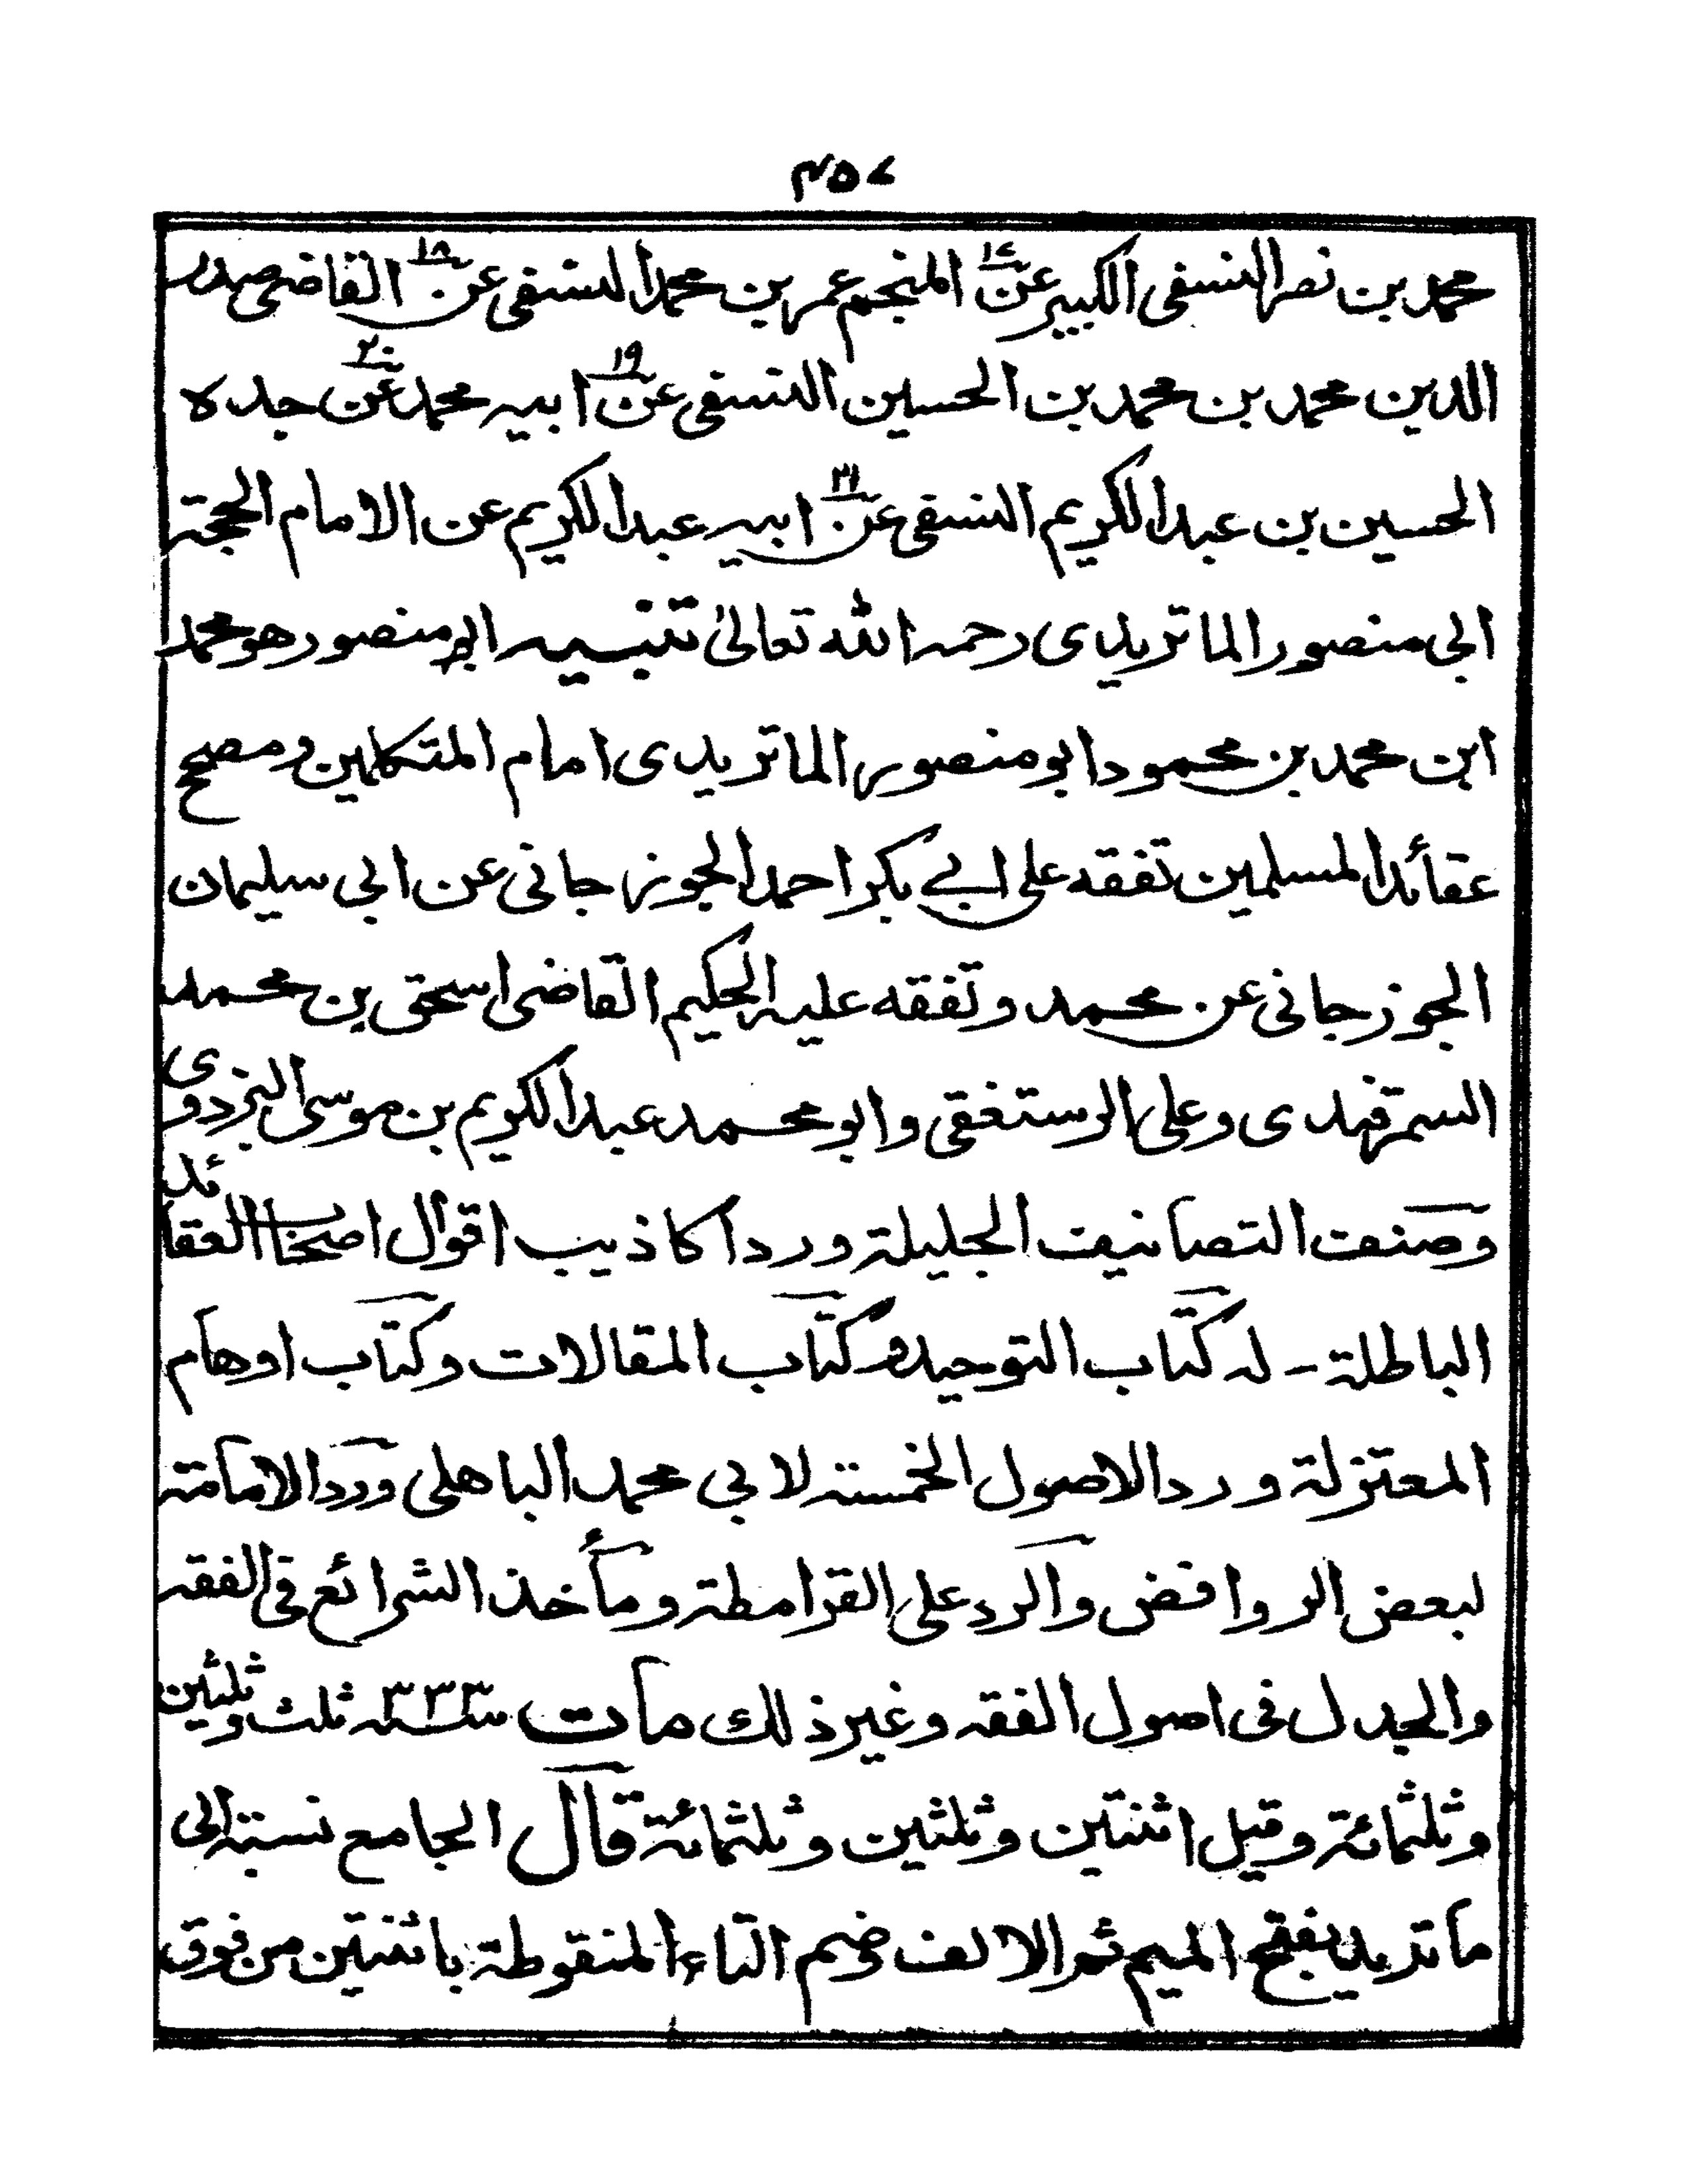 ۴۵۷
محمد بن نصر النسفى الكبير عن۱۷ المنجم عمر بن محمد النسفى عن۱۸ القاضى صدر
الدين محمد بن محمد بن الحسين النسفى عن۱۹ ابيه محمد عن۲۰ جده
الحسين بن عبد الكريم النسفى عن۲۱ ابيه عبد الكريم عن الامام الحجة
ابى منصور الماتريدى رحمه الله تعالىٰ تنبيه ابو منصور هو محمد
ابن محمد بن محمود ابو منصور الماتريدى امام المتكلمين ومصحح
عقائد المسلمين تفقه على ابى بكر احمد الجوزجانى عن ابى سليمان
الجوزجانى عن محمد وتفقه عليه الحكيم القاضى اسحق بن محمد
السمرقندى وعلى الرستغفى وابو محمد عبد الكريم بن موسى البزدوى
وصنف التصانيف الجليلة ورد اكاذيب اقوال اصحاب العقائد
الباطلة - له كتاب التوحيد وكتاب المقالات وكتاب اوهام
المعتزلة ورد الاصول الخمسة لابى محمد الباهلى ورد الامامة
لبعض الروافض والرد على القرامطة ومأخذ الشرائع فى الفقه
والجدل فى اصول الفقه وغير ذلك مات سنة ۳۳۳ ثلث وثلثين
وثلثمائة وقيل اثنتين وثلثين وثلثمائة قال الجامع نسبته الى
ماتريد بفتح الميم ثم الالف وضم التاء المنقوطة باثنتين من فوق